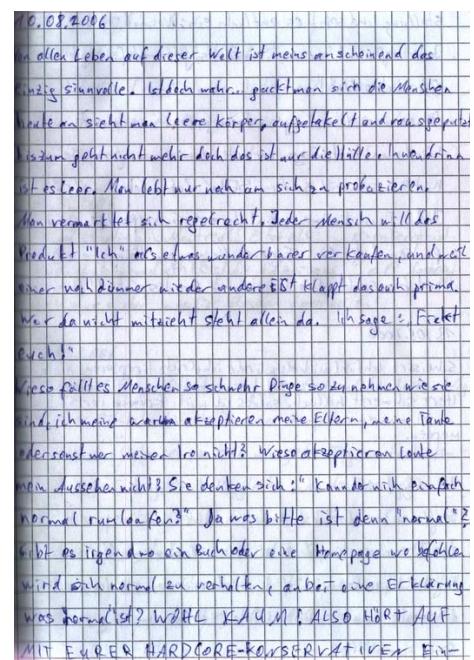 10.08.2006
on allen Leben auf dieser Welt ist meins anscheinend das
inzig sinnvolle. Ist doch wahr.. guckt man sich die Menshen
heute an sieht man leere Körper, aufgetakelt und rausgeputzt
bis zum geht nicht mehr doch das ist nur die Hülle. Innendrinn
ist es leer. Man lebt nur noch um sich zu
Man vermarktet sich regelrecht. Jeder Mensch will das
Produkt "Ich" als etwas wunderbares verkaufen, und weil
einer noch dümmer wie der andere ist klappt das auch prima.
Wer da nicht mitzieht steht allein da. Ich sage:,,
euch!"
Wieso fällt es Menschen so schwehr Dinge so zu nehmen wie sie
sind, ich meine warum akzeptieren meine Eltern, meine Tante
oder sonst wer meinen Iro nicht? Wieso akzeptieren Leute
mein Aussehen nicht? Sie denken sich:" Kann der nich einfach
normal rumlaufen?" Ja was bitte ist denn "normal"?
Gibt es irgendwo ein Buch oder eine Homepage wo befohlen
wird sich normal zu verhalten, anbei eine Erklärung
was normal ist? WOHL KAUM! ALSO HÖRT AUF
MIT EURER HARDCORE-KONSERVATIVEN Ein-